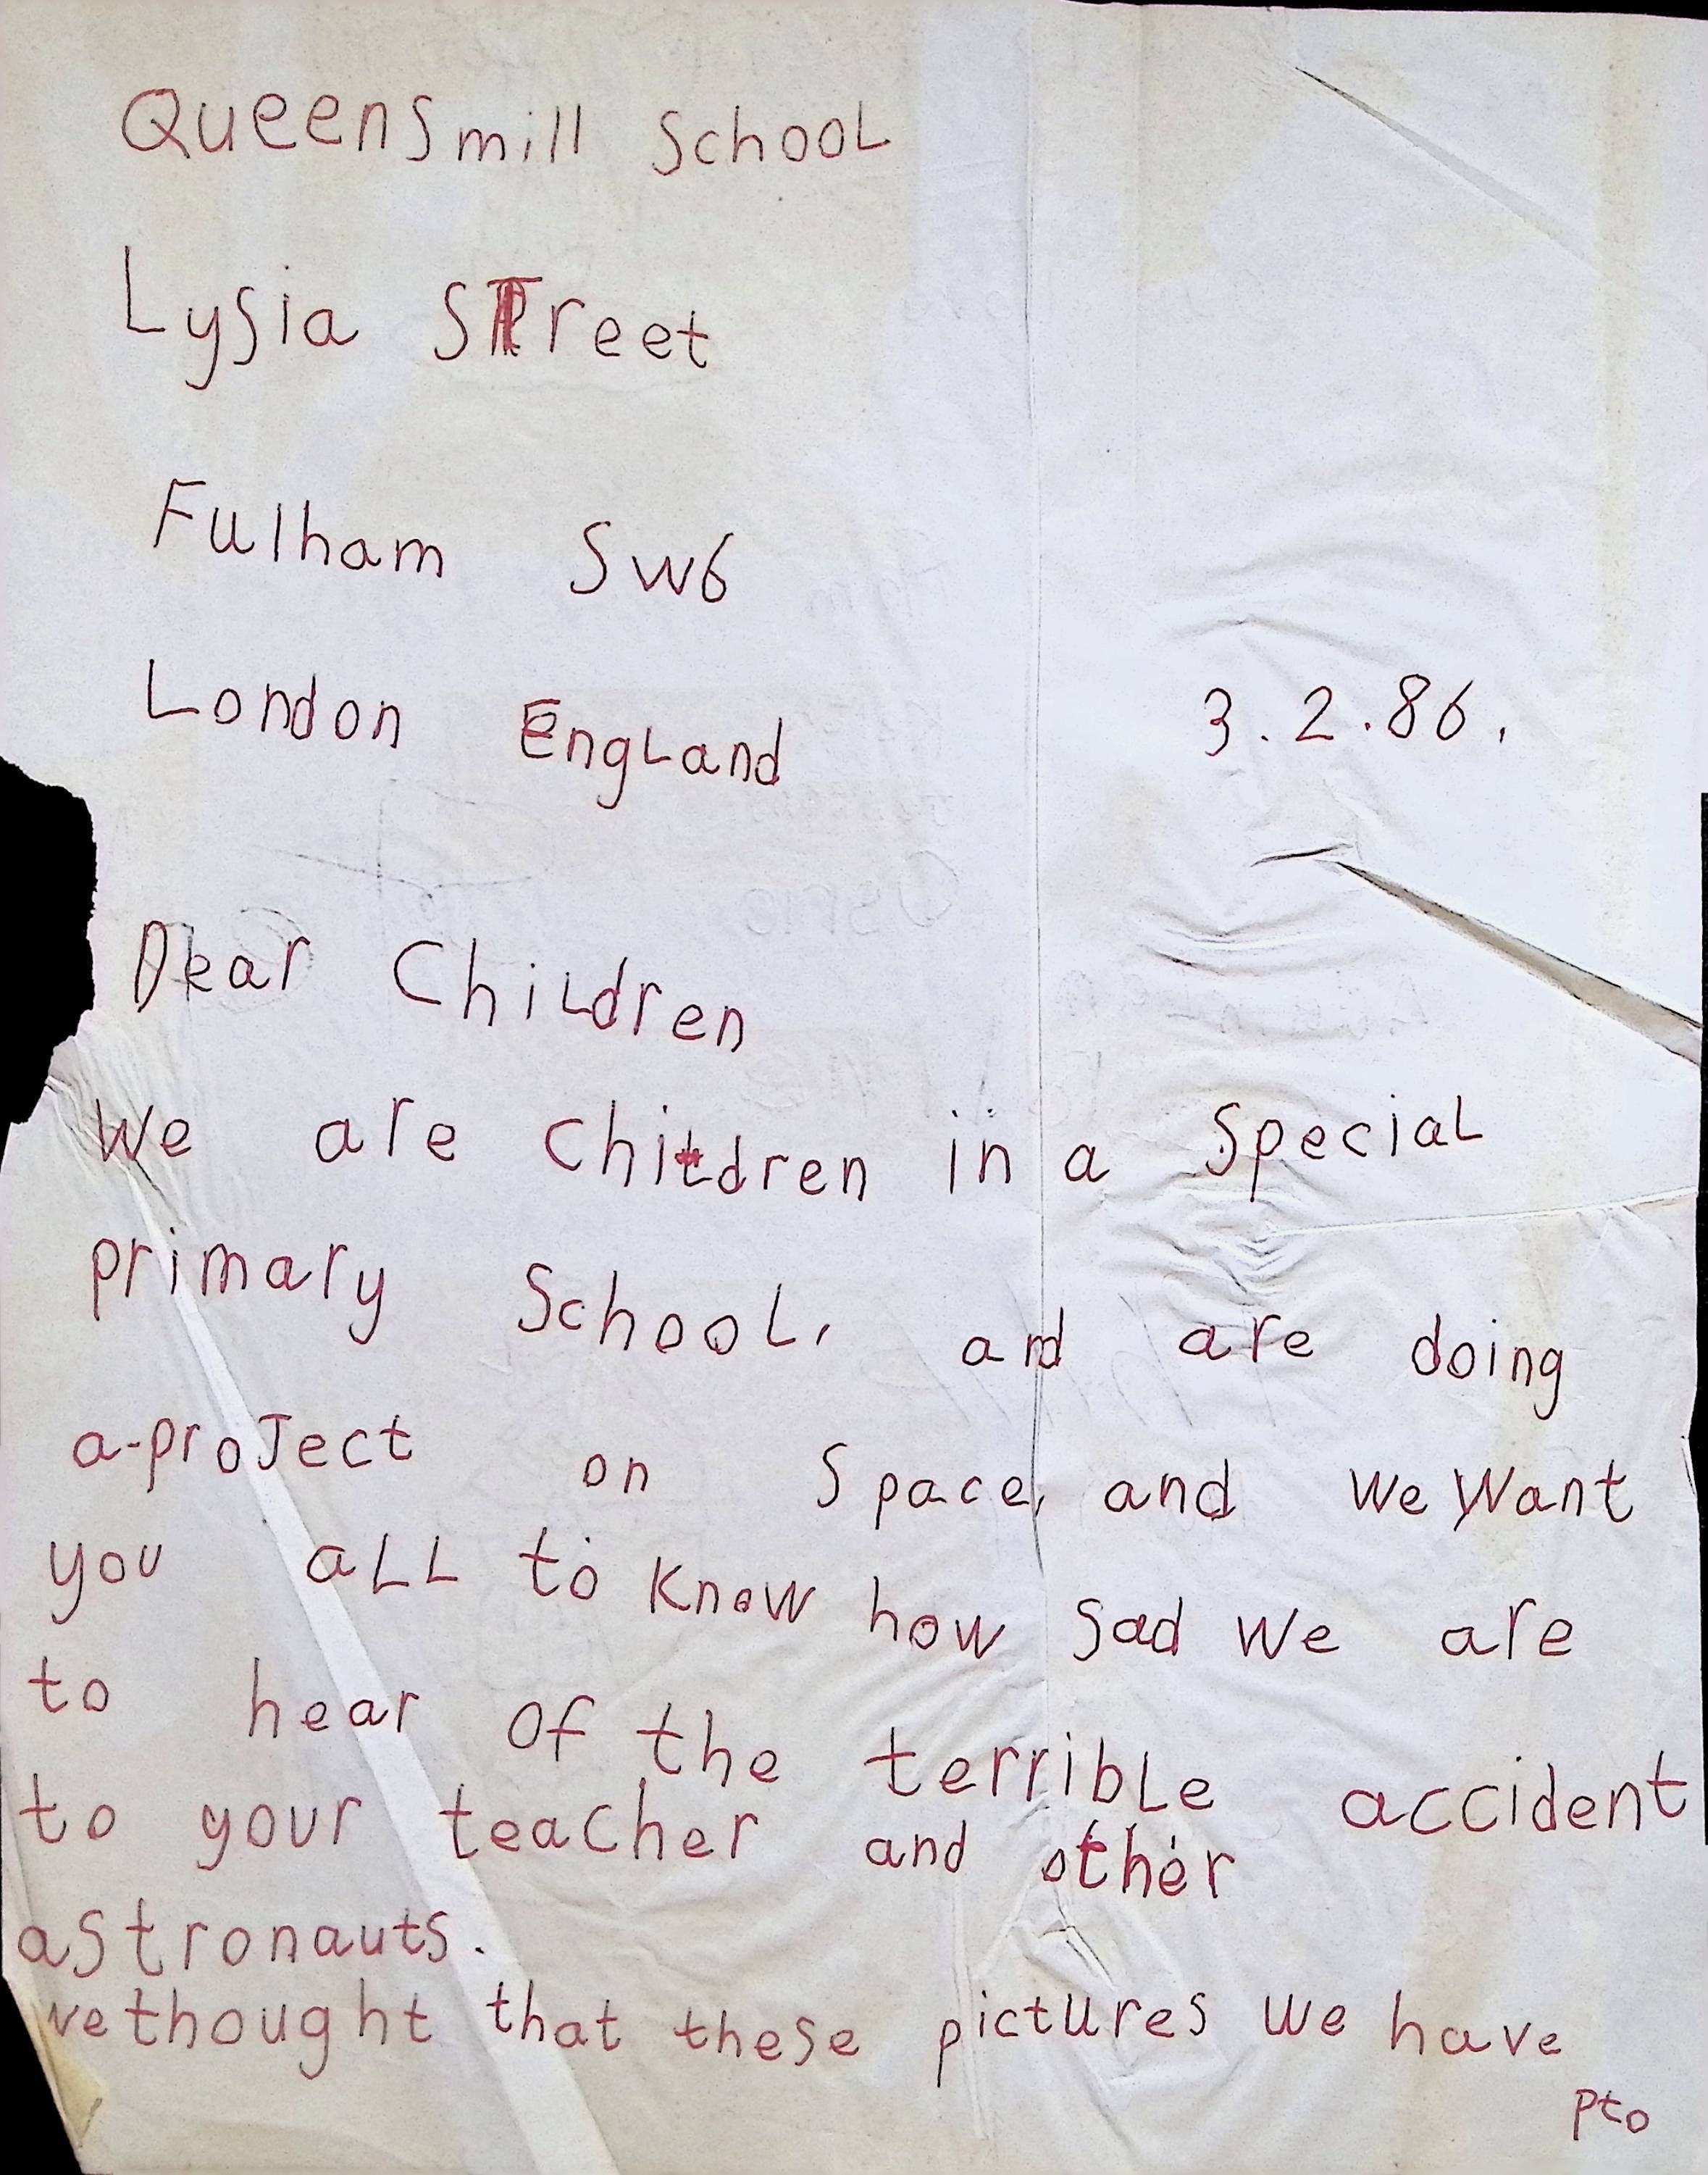 Queensmill School
Lysia STreet
Fulham SW6
London England
3.2.86.
Dear Children
We are children in a Special
primary School, and are doing
a-proJect on Space, and we Want
you aLL to Know how sad we are
to hear of the terribLe accident
to your teacher and other
astronauts.
we thought that these pictures we have
pto